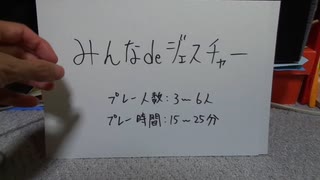 みんなdeジェスチャー
プレー人数:3〜6人
プレー時間:15〜25分